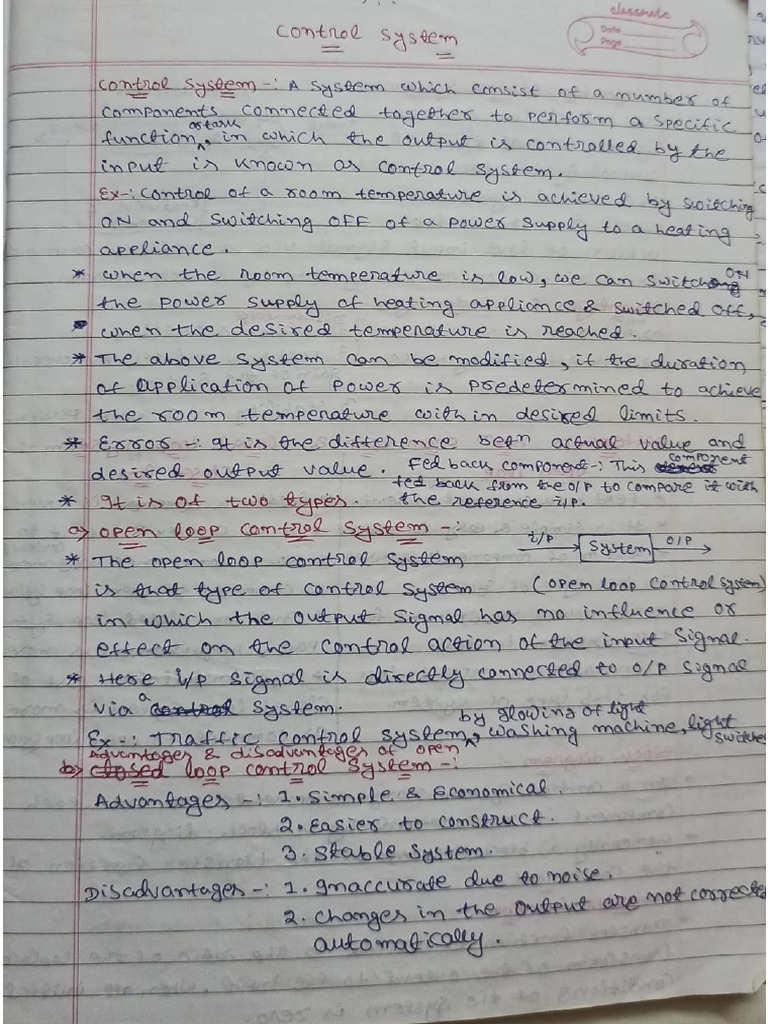 classmate
Date
Page
Control System
Control System -: A System which consist of a number of
components connected together to perform a specific
function or task, in which the output is controlled by the
input is known as control system.
Ex-: Control of a room temperature is achieved by switching
ON and Switching OFF of a power supply to a heating
appliance.
* When the room temperature is low, we can switch ON
the power supply of heating appliance & switched off,
when the desired temperature is reached.
* The above System can be modified, if the duration
of application of power is predetermined to achieve
the room temperature within desired limits.
* Error -: It is the difference betn actual value and
desired output value. Fed back component-: This component
fed back from the O/P to compare it with
* It is of two types. the reference i/P.
a) open loop control System -:
i/P System O/P
* The open loop control System
is that type of control System (open loop control System)
in which the output Signal has no influence or
effect on the control action of the input Signal.
* Here i/p signal is directly connected to O/P Signal
via a control System.
Ex -: Traffic control system by glowing of light, washing machine, light
switches
Advantages & disadvantages of open
b) closed loop control System -:
Advantages -: 1. Simple & Economical.
2. Easier to construct.
3. Stable System.
Disadvantages -: 1. Inaccurate due to noise.
2. Changes in the output are not corrected
automatically.